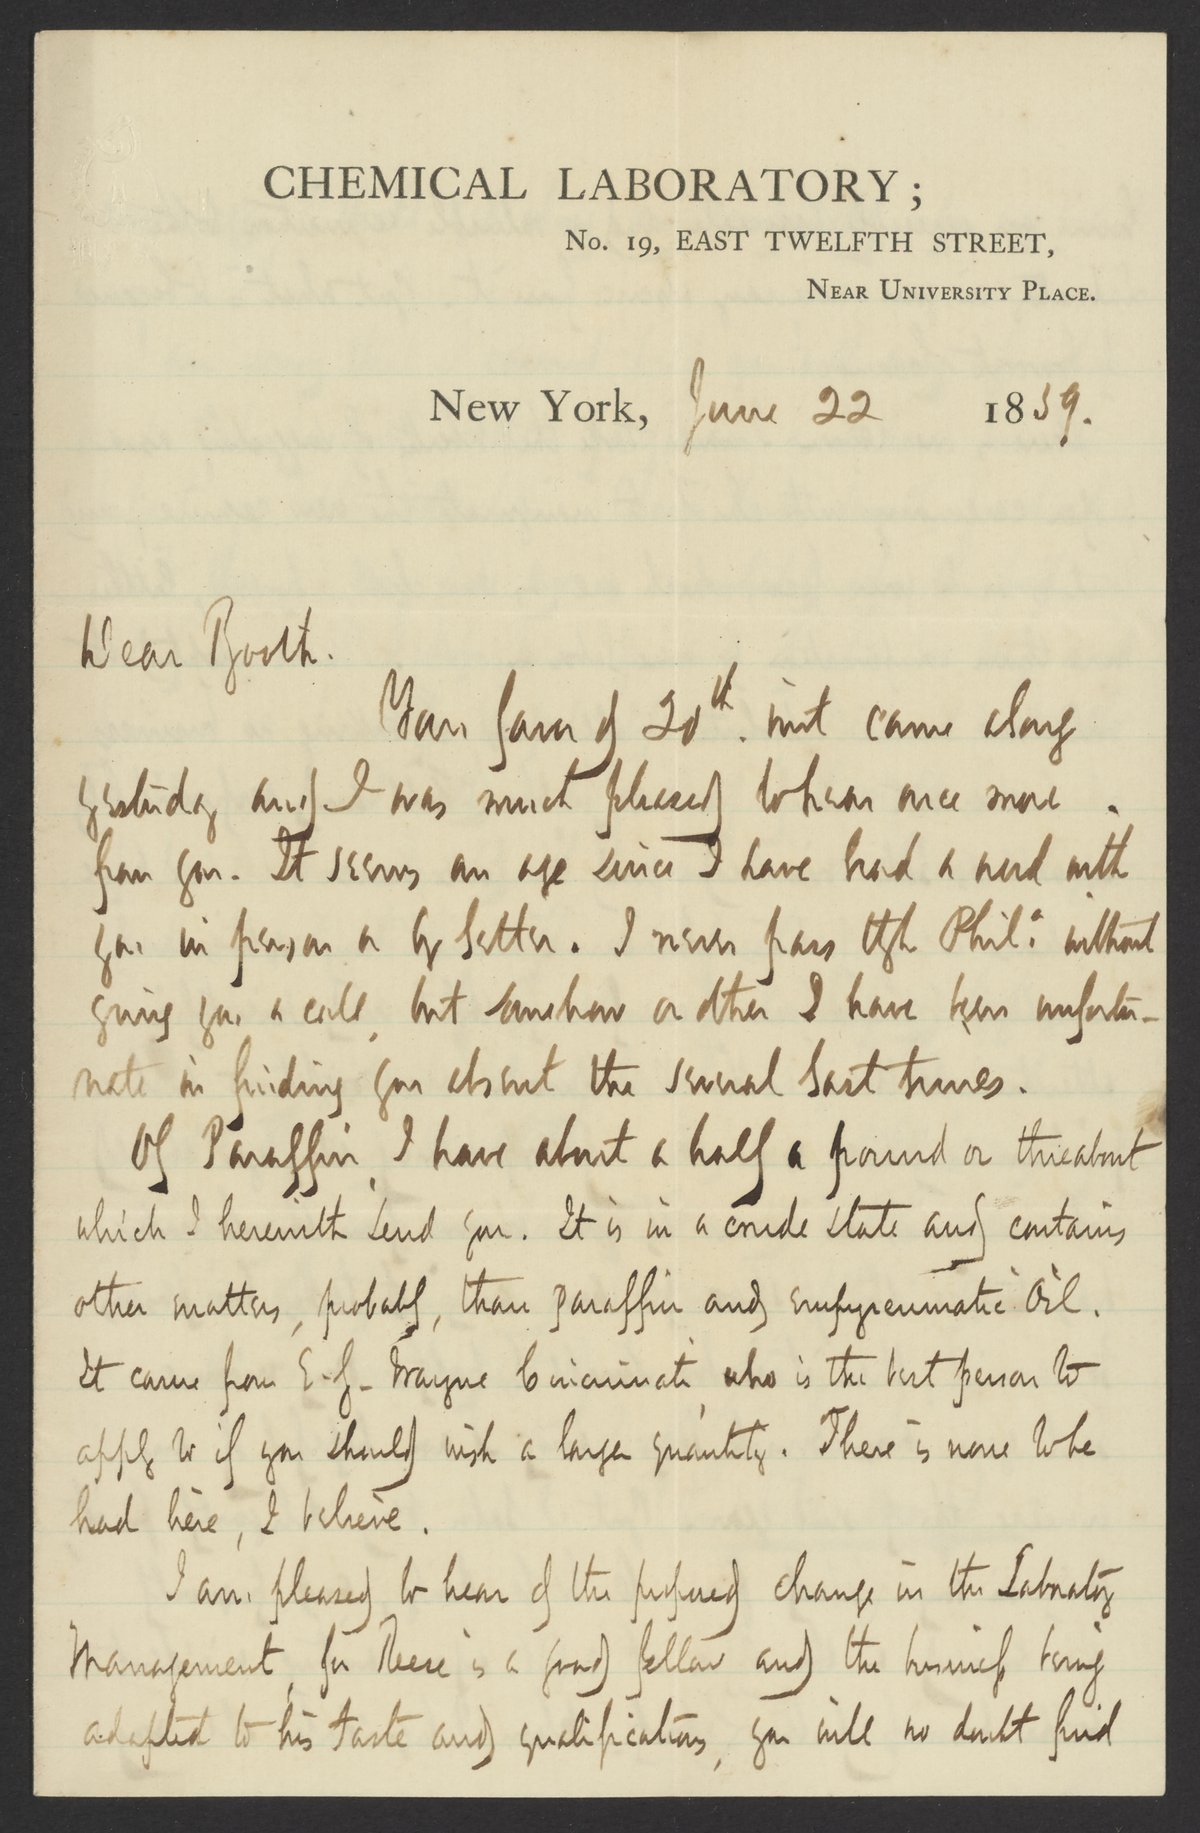 CHEMICAL LABORATORY;
No. 19, EAST TWELFTH STREET,
Near University Place.
New York, June 22 1859.
Dear Booth.
Your favor of 20th. inst came along
yesterday and I was much pleased to hear once more
from you. It seems an age since I have had a word with
you in person or by letter. I never pass thgh Phila. without
giving you a call, but somehow or other I have been unfortu-
nate in finding you absent the several last times.
Of Paraffin, I have about a half a pound or thereabout
which I herewith send you. It is in a crude state and contains
other matters, probably, than paraffin and empyreumatic Oil.
It came from E. S. Wayne Cincinnati, who is the best person to
apply to if you should wish a larger quantity. There is none to be
had here, I believe.
I am pleased to hear of the proposed change in the Laboratory
Management, for Reese is a good fellow and the business being
adapted to his taste and qualifications, you will no doubt find